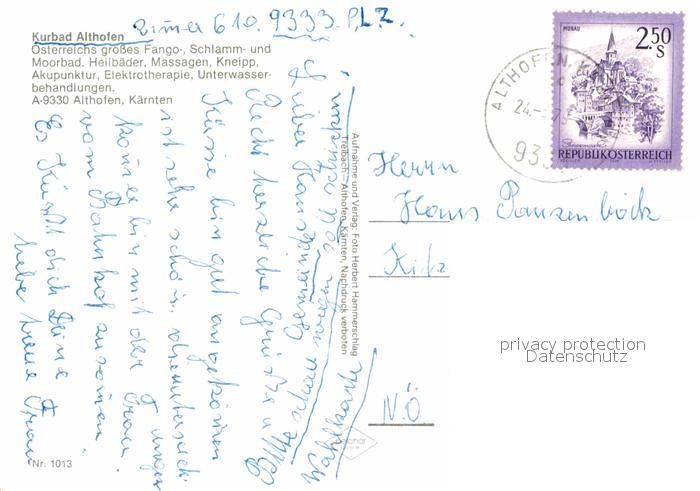 Zimmer 610. 9333 P.L.Z.
Kurbad Althofen
Österreichs großes Fango-, Schlamm- und
Moorbad. Heilbäder, Massagen, Kneipp,
Akupunktur, Elektrotherapie, Unterwasser-
behandlungen.
A-9330 Althofen, Kärnten
Lieber Hans
Recht herzliche Grüße u
Küsse bin gut angekommen
ist sehr schön.
komme bin mit der Frau
vom Bahnhof zusammen.
Es Küsst dich Deine
liebe treue Frau
Bitte schau wegen
Wahlkarte
Nr. 1013
Aufnahme und Verlag: Foto Herbert Hammerschlag
Treibach – Althofen, Kärnten, Nachdruck verboten
MURAU
2.50
S
REPUBLIK ÖSTERREICH
ALTHOFEN, K
24.
933
Herrn
Hans Panzenböck
Kitz
N.Ö
privacy protection
Datenschutz